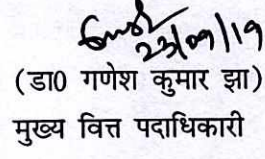 23/09/19
(डा0 गणेश कुमार झा)
मुख्य वित्त पदाधिकारी